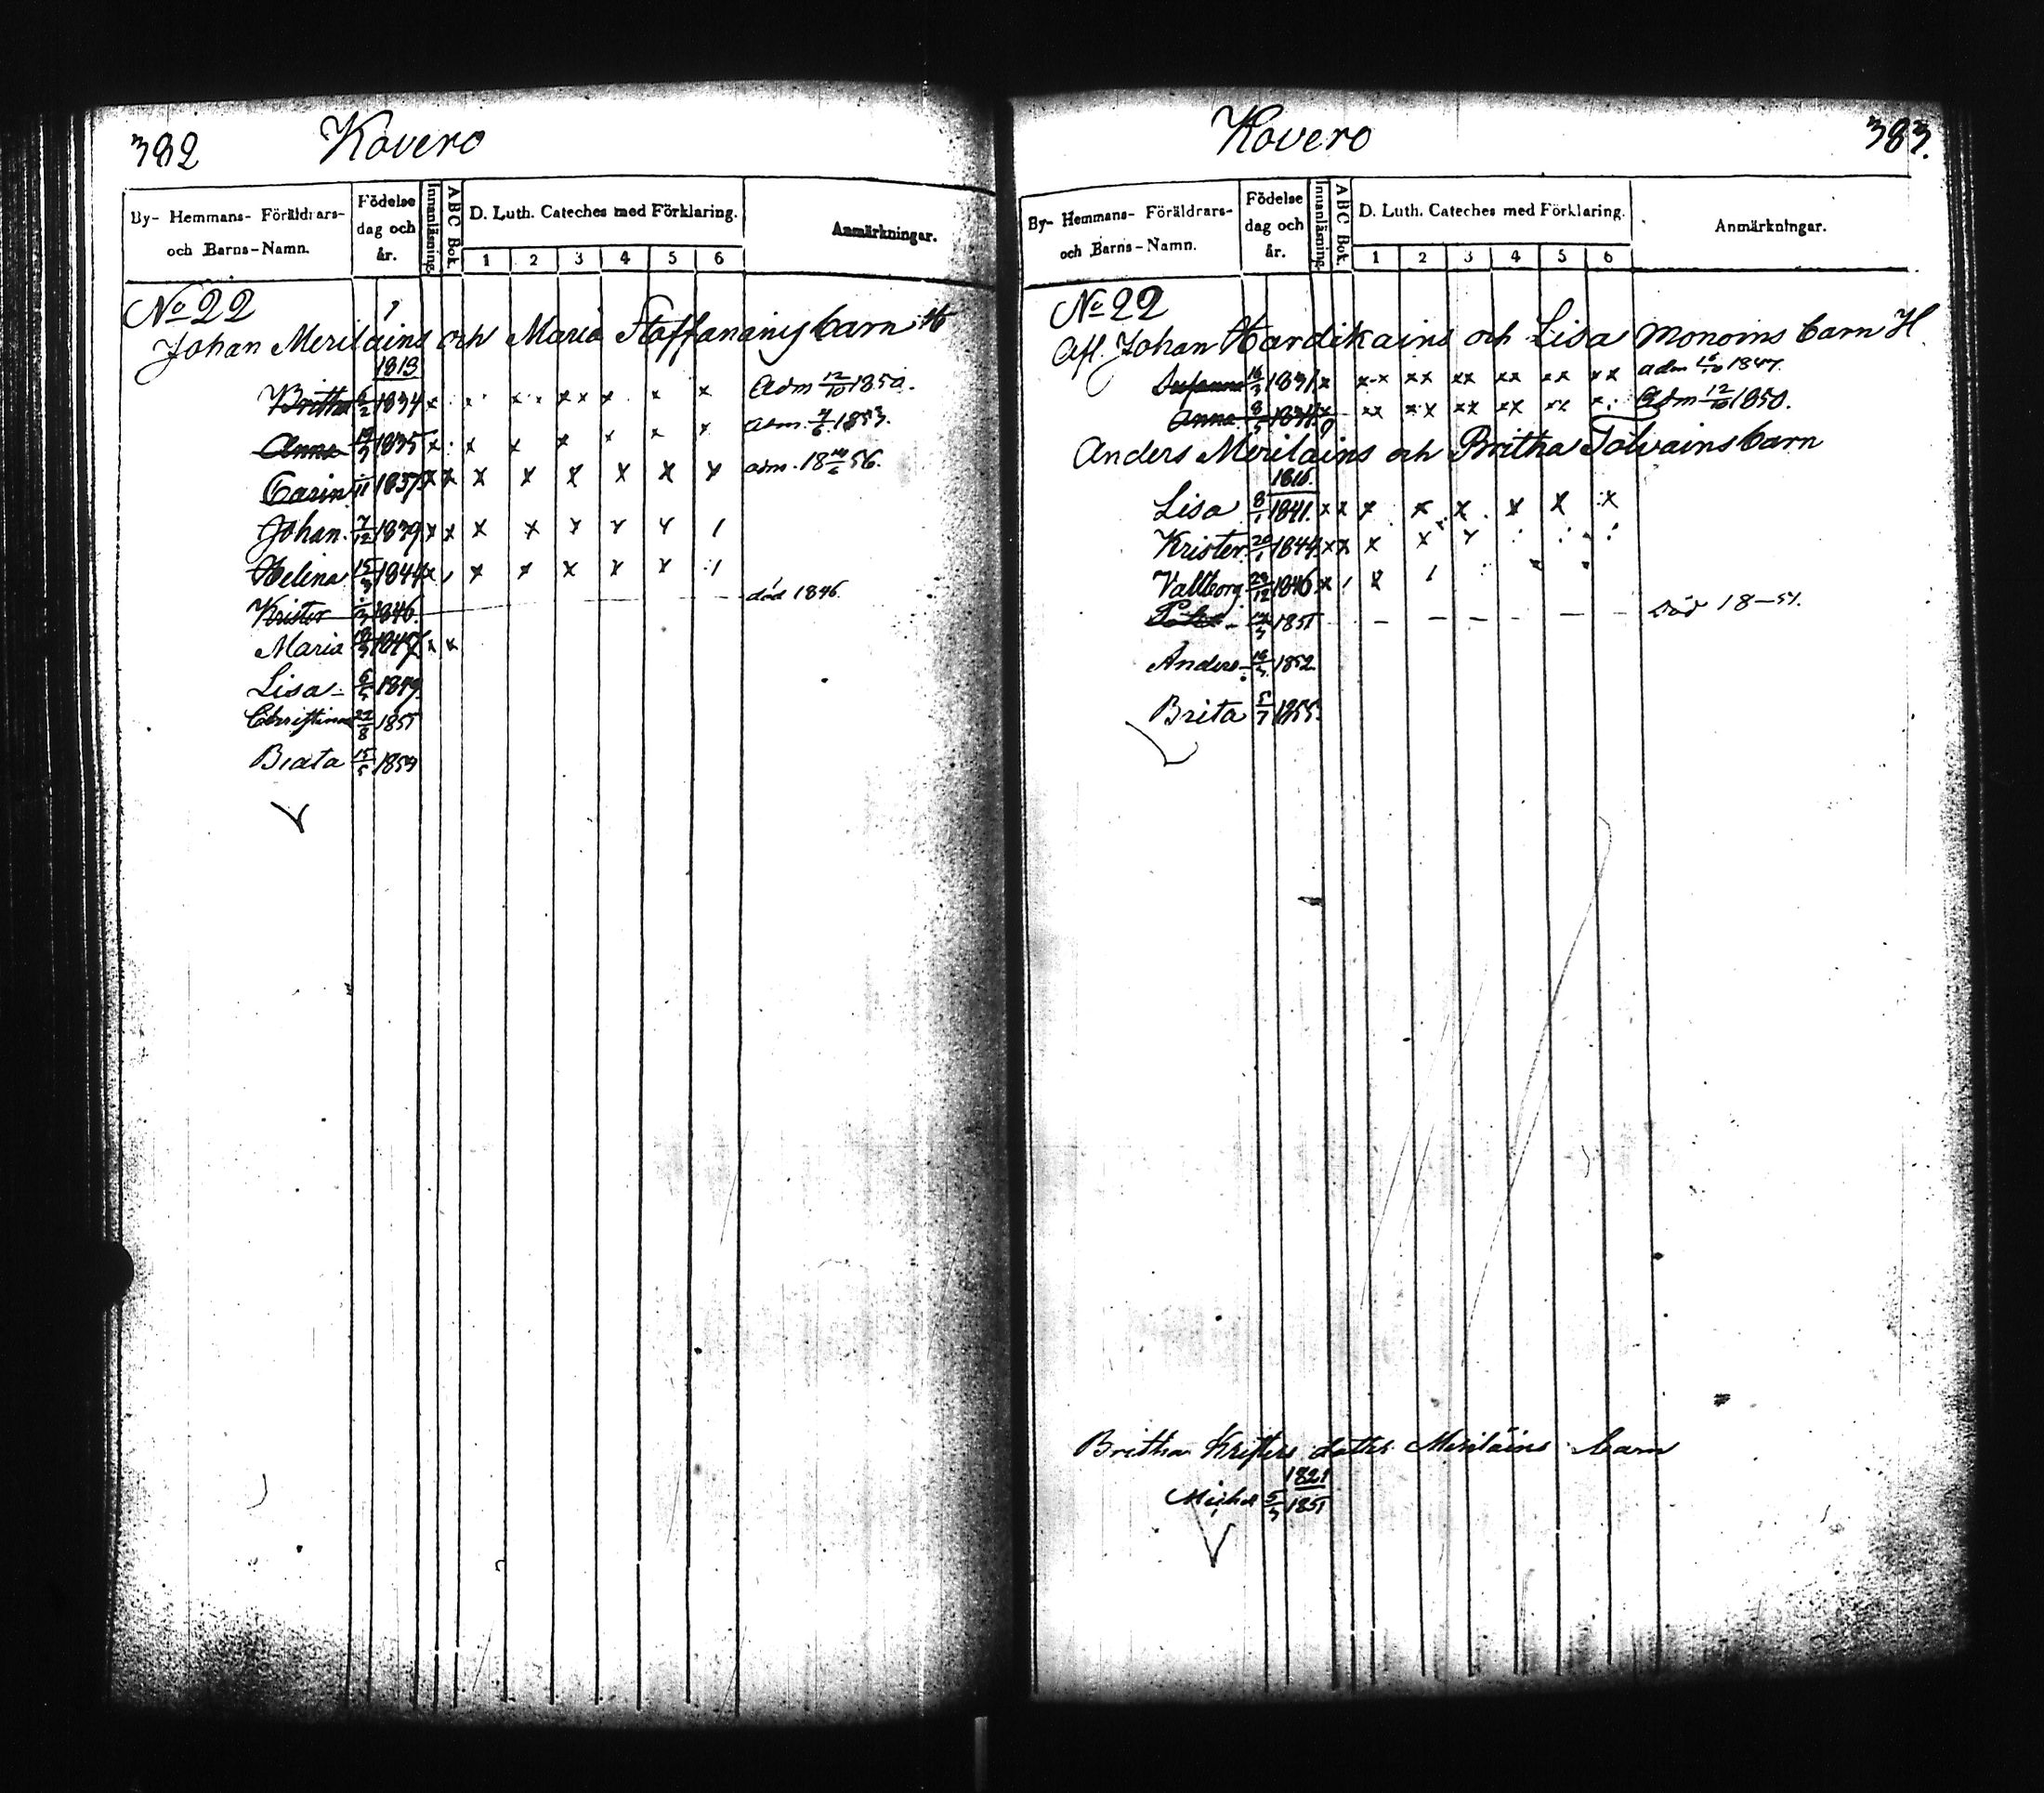 382 Kovero
By- Hemmans- Föräldrars- och Barns-Namn. Födelse dag och år. Innanläsning. ABC Bok. D. Luth. Cateches med Förklaring. 1 2 3 4 5 6 Anmärkningar.
No 22
Johan Meriläins och Maria Staffanains barn
1813
Britha 6/2 1834 x x x x x x x Adm 12/10 1850.
Anna 1835 x x x x x x x adm. 7/6 1853.
Carin 1837 x x x x x x x x adm. 18 56.
Johan. 7/12 1839 x x x x x x x 1
Helina 15/3 1844 x x x x x x 1
Krister 1846. död 1846
Maria 1847 x x
Lisa 6/5 1849
Christina 22/8 1851
Beata 15/5 1853
Kovero 383.
By- Hemmans- Föräldrars- och Barns-Namn. Födelse dag och år. Innanläsning. ABC Bok. D. Luth. Cateches med Förklaring. 1 2 3 4 5 6 Anmärkningar.
No 22
Afl. Johan Hardikains och Lisa Monoins barn H.
Susanna 16/3 1831 x xx xx xx xx xx xx adm 1847.
Anna 8/5 1834 x xx xx xx xx xx x Adm 12/10 1850.
Anders Meriläins och Britha Tolvains barn
1816.
Lisa 8/1 1841. x x x x x x x x
Krister 20/1 1844 x x x x x
Vallborg 1846 x x
1851 Död 18-51.
Anders 1852
Brita 5/7 1855.
Britha Kristers dotter Meriläins barn
1821
Michel 5/3 1851